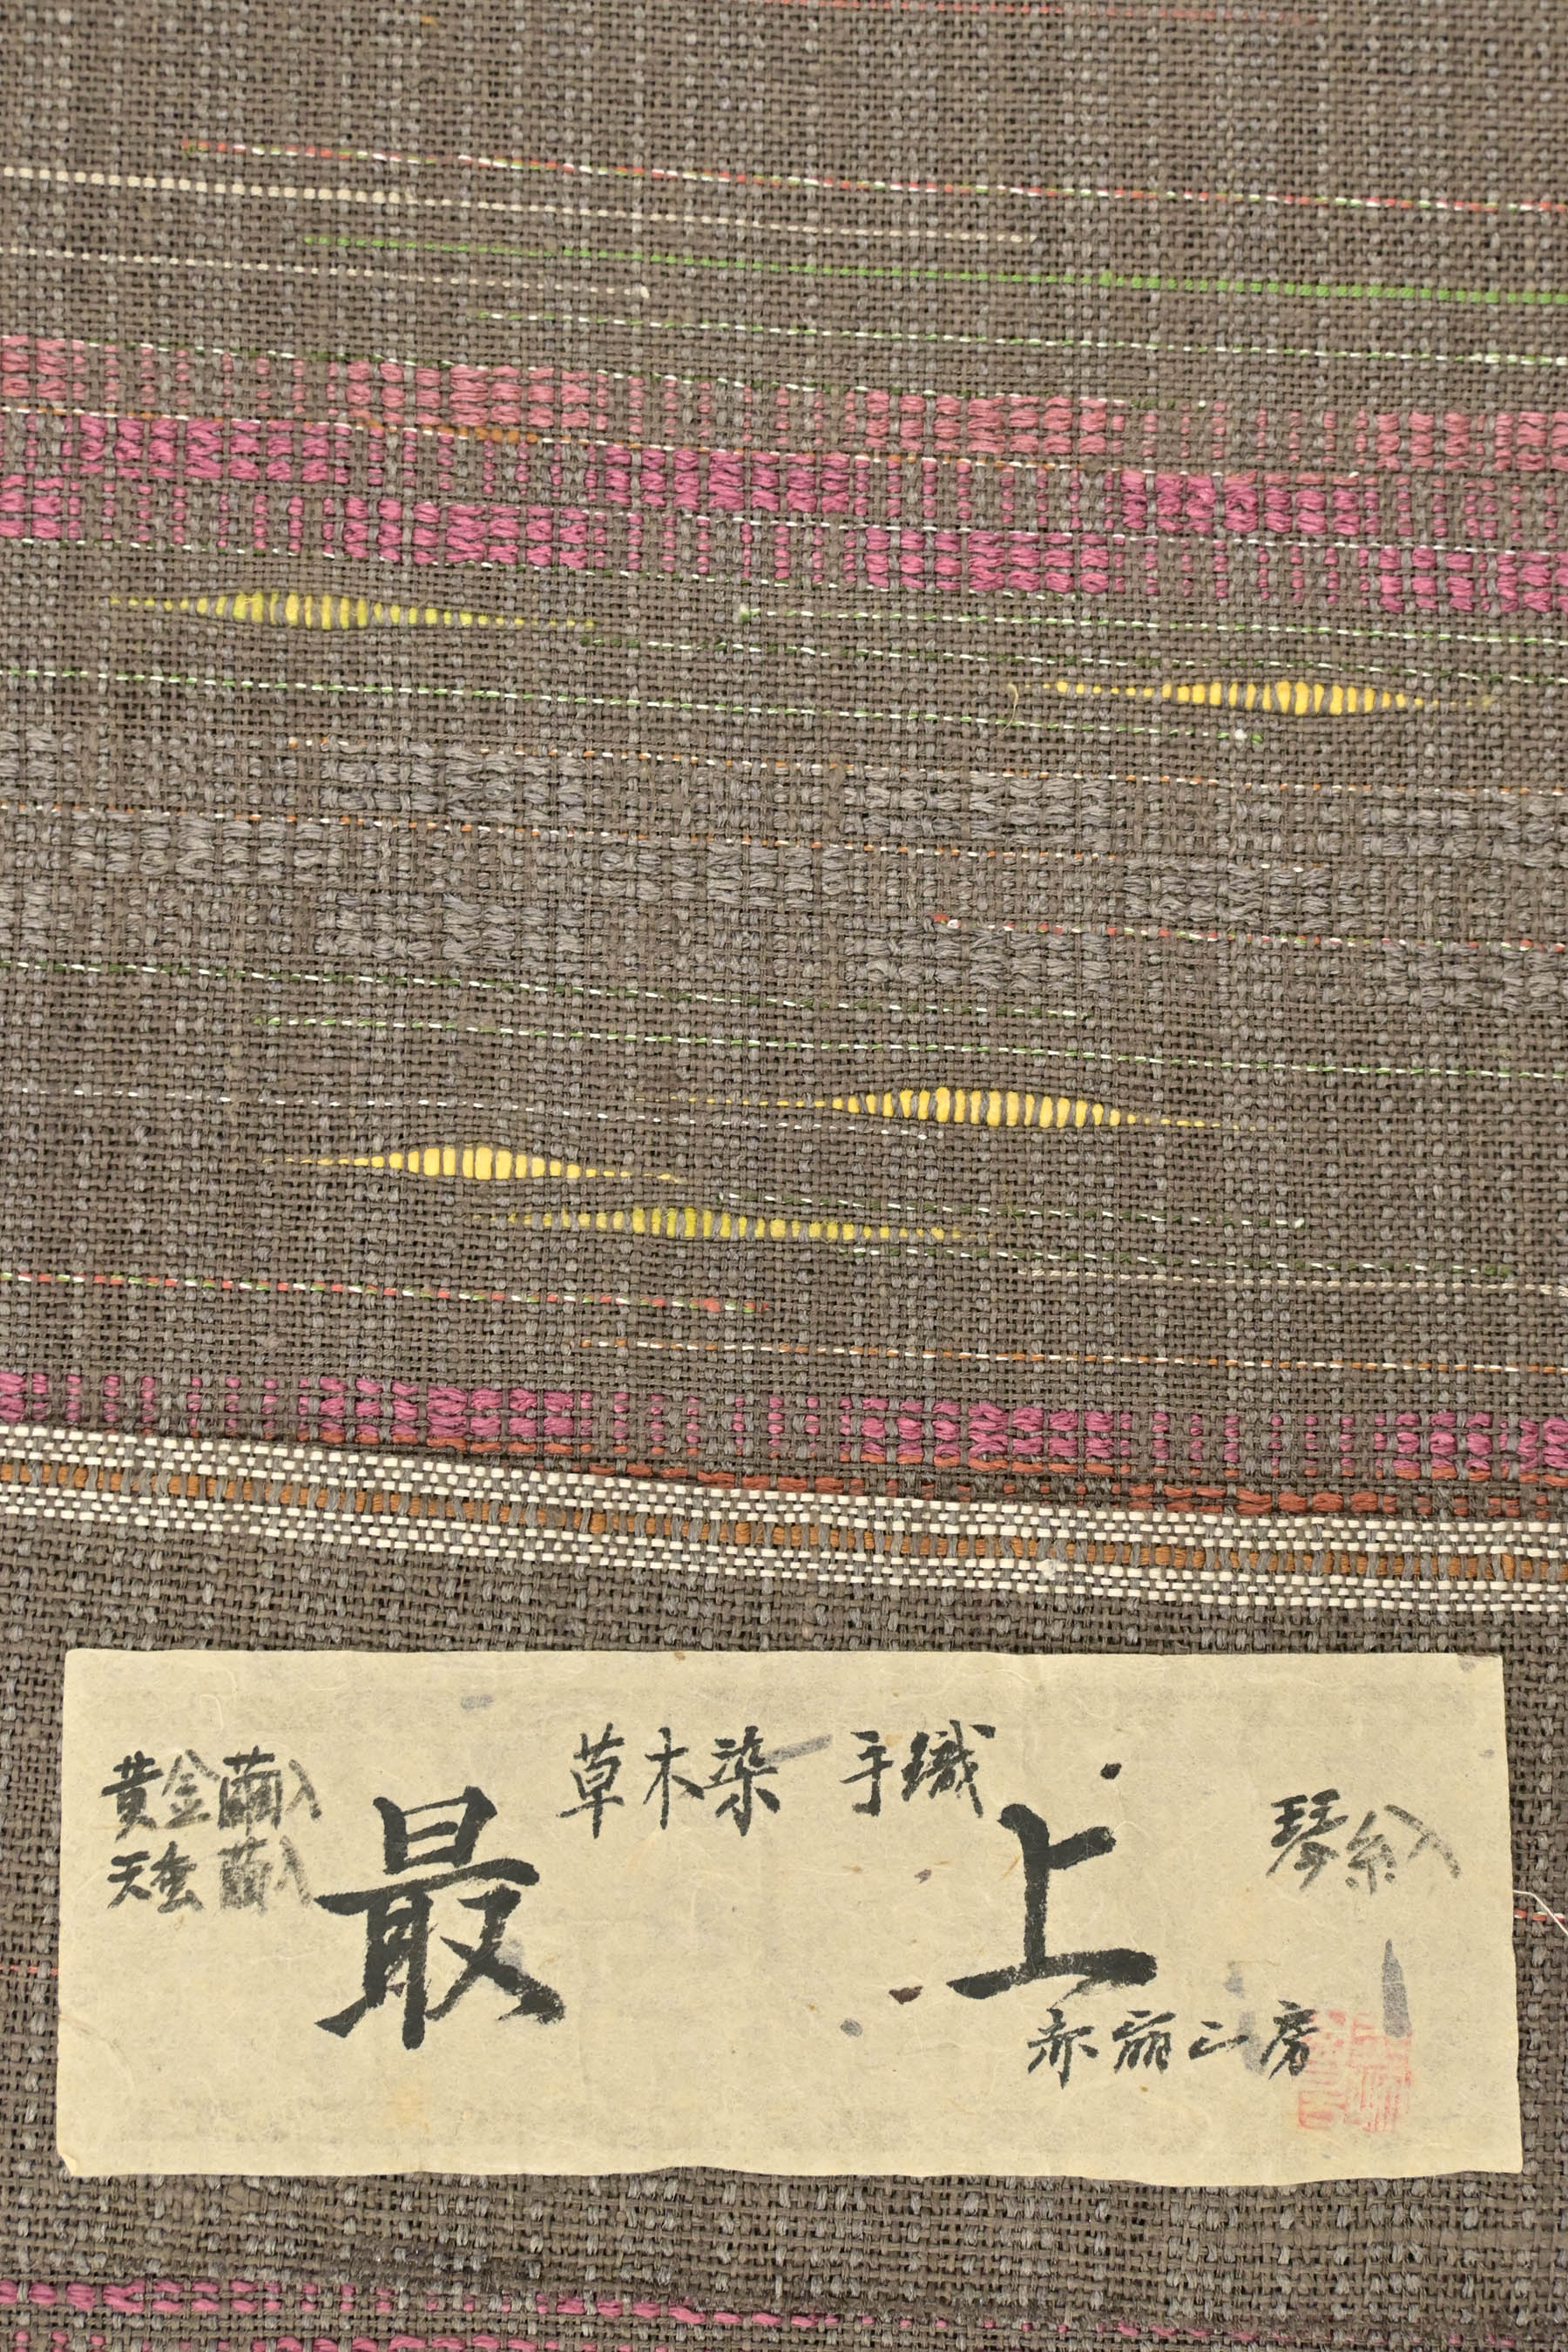 草木染 手織
黄金繭入
天蚕繭入
最上
琴糸入
赤崩工房